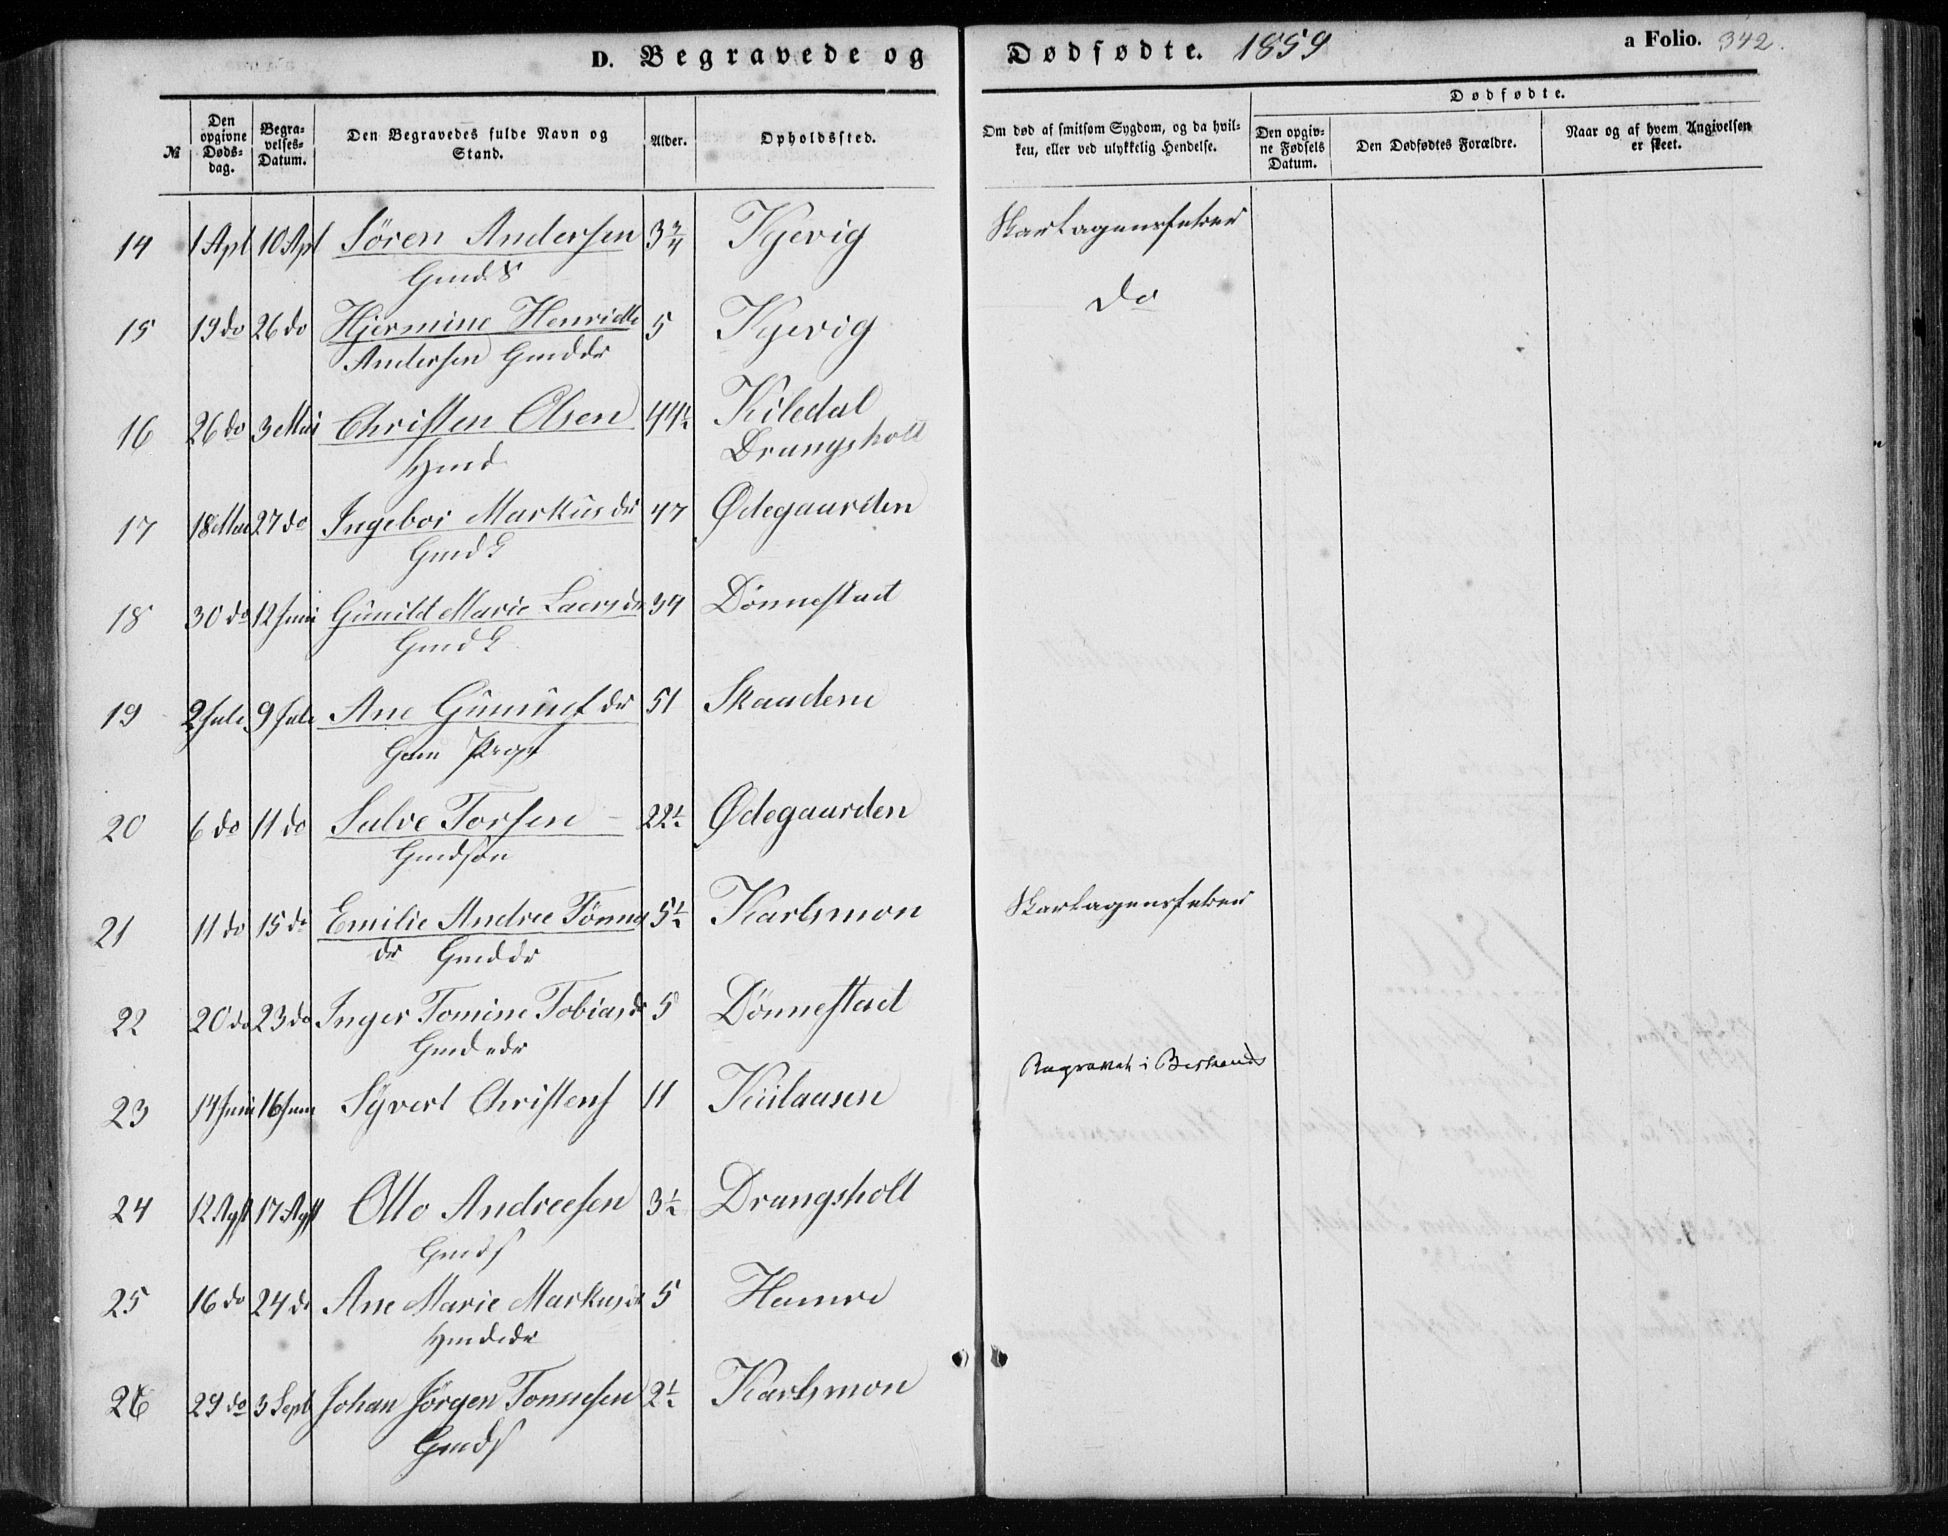 D. Begravede og Dødfødte. 1859 a Folio. 342.
№
Den opgivne Døds-dag.
Begra-velses-Datum.
Den Begravedes fulde Navn og Stand.
Alder.
Opholdssted.
Om død af smitsom Sygdom, og da hvil-ken, eller ved ulykkelig Hendelse.
Dødfødte.
Den opgiv-ne Fødsels Datum.
Den Dødfødtes Forældre.
Naar og af hvem Angivelsen er skeet.
14 1 Apl 10 Apl Søren Andersen 3 3/4 Kjevig Skarlagensfeber
Gmds
15 19 do 26 do Hjermine Henriette 5 Kjevig do
Andersen Gmddr
16 26 do 3 Mai Christen Olsen 44½ Kiledal
Hmd Drangsholt
17 18 Mai 27 do Ingebor Markusdr 47 Ødegaarden
Gmdk
18 30 do 12 Juni Gunild Marie Laersdr 34 Dønnestad
Gmdk
19 2 Juli 9 Juli Ane Gunulfdr 51 Skaadene
20 6 do 11 do Salve Torsen 22½ Ødegaarden
Gmdsøn
21 11 do 15 do Emilie Andree Tønnes 5½ Karlsmon Skarlagensfeber
dr Gmddr
22 20 do 23 do Inger Tomine Tobiasdr 5 Dønnestad
Gmdsdr
23 14 Juni 16 Juni Syvert Christens 11 Begravet i Birkenæs
24 12 Agst 17 Agst Otto Andreesen 3½ Drangsholt
Gmds
25 16 do 24 do Ane Marie Markusdr 5 Hamre
Hmdsdr
26 29 do 3 Sept Johan Jørgen Tønnesen 2½ Karlsmon
Gmds